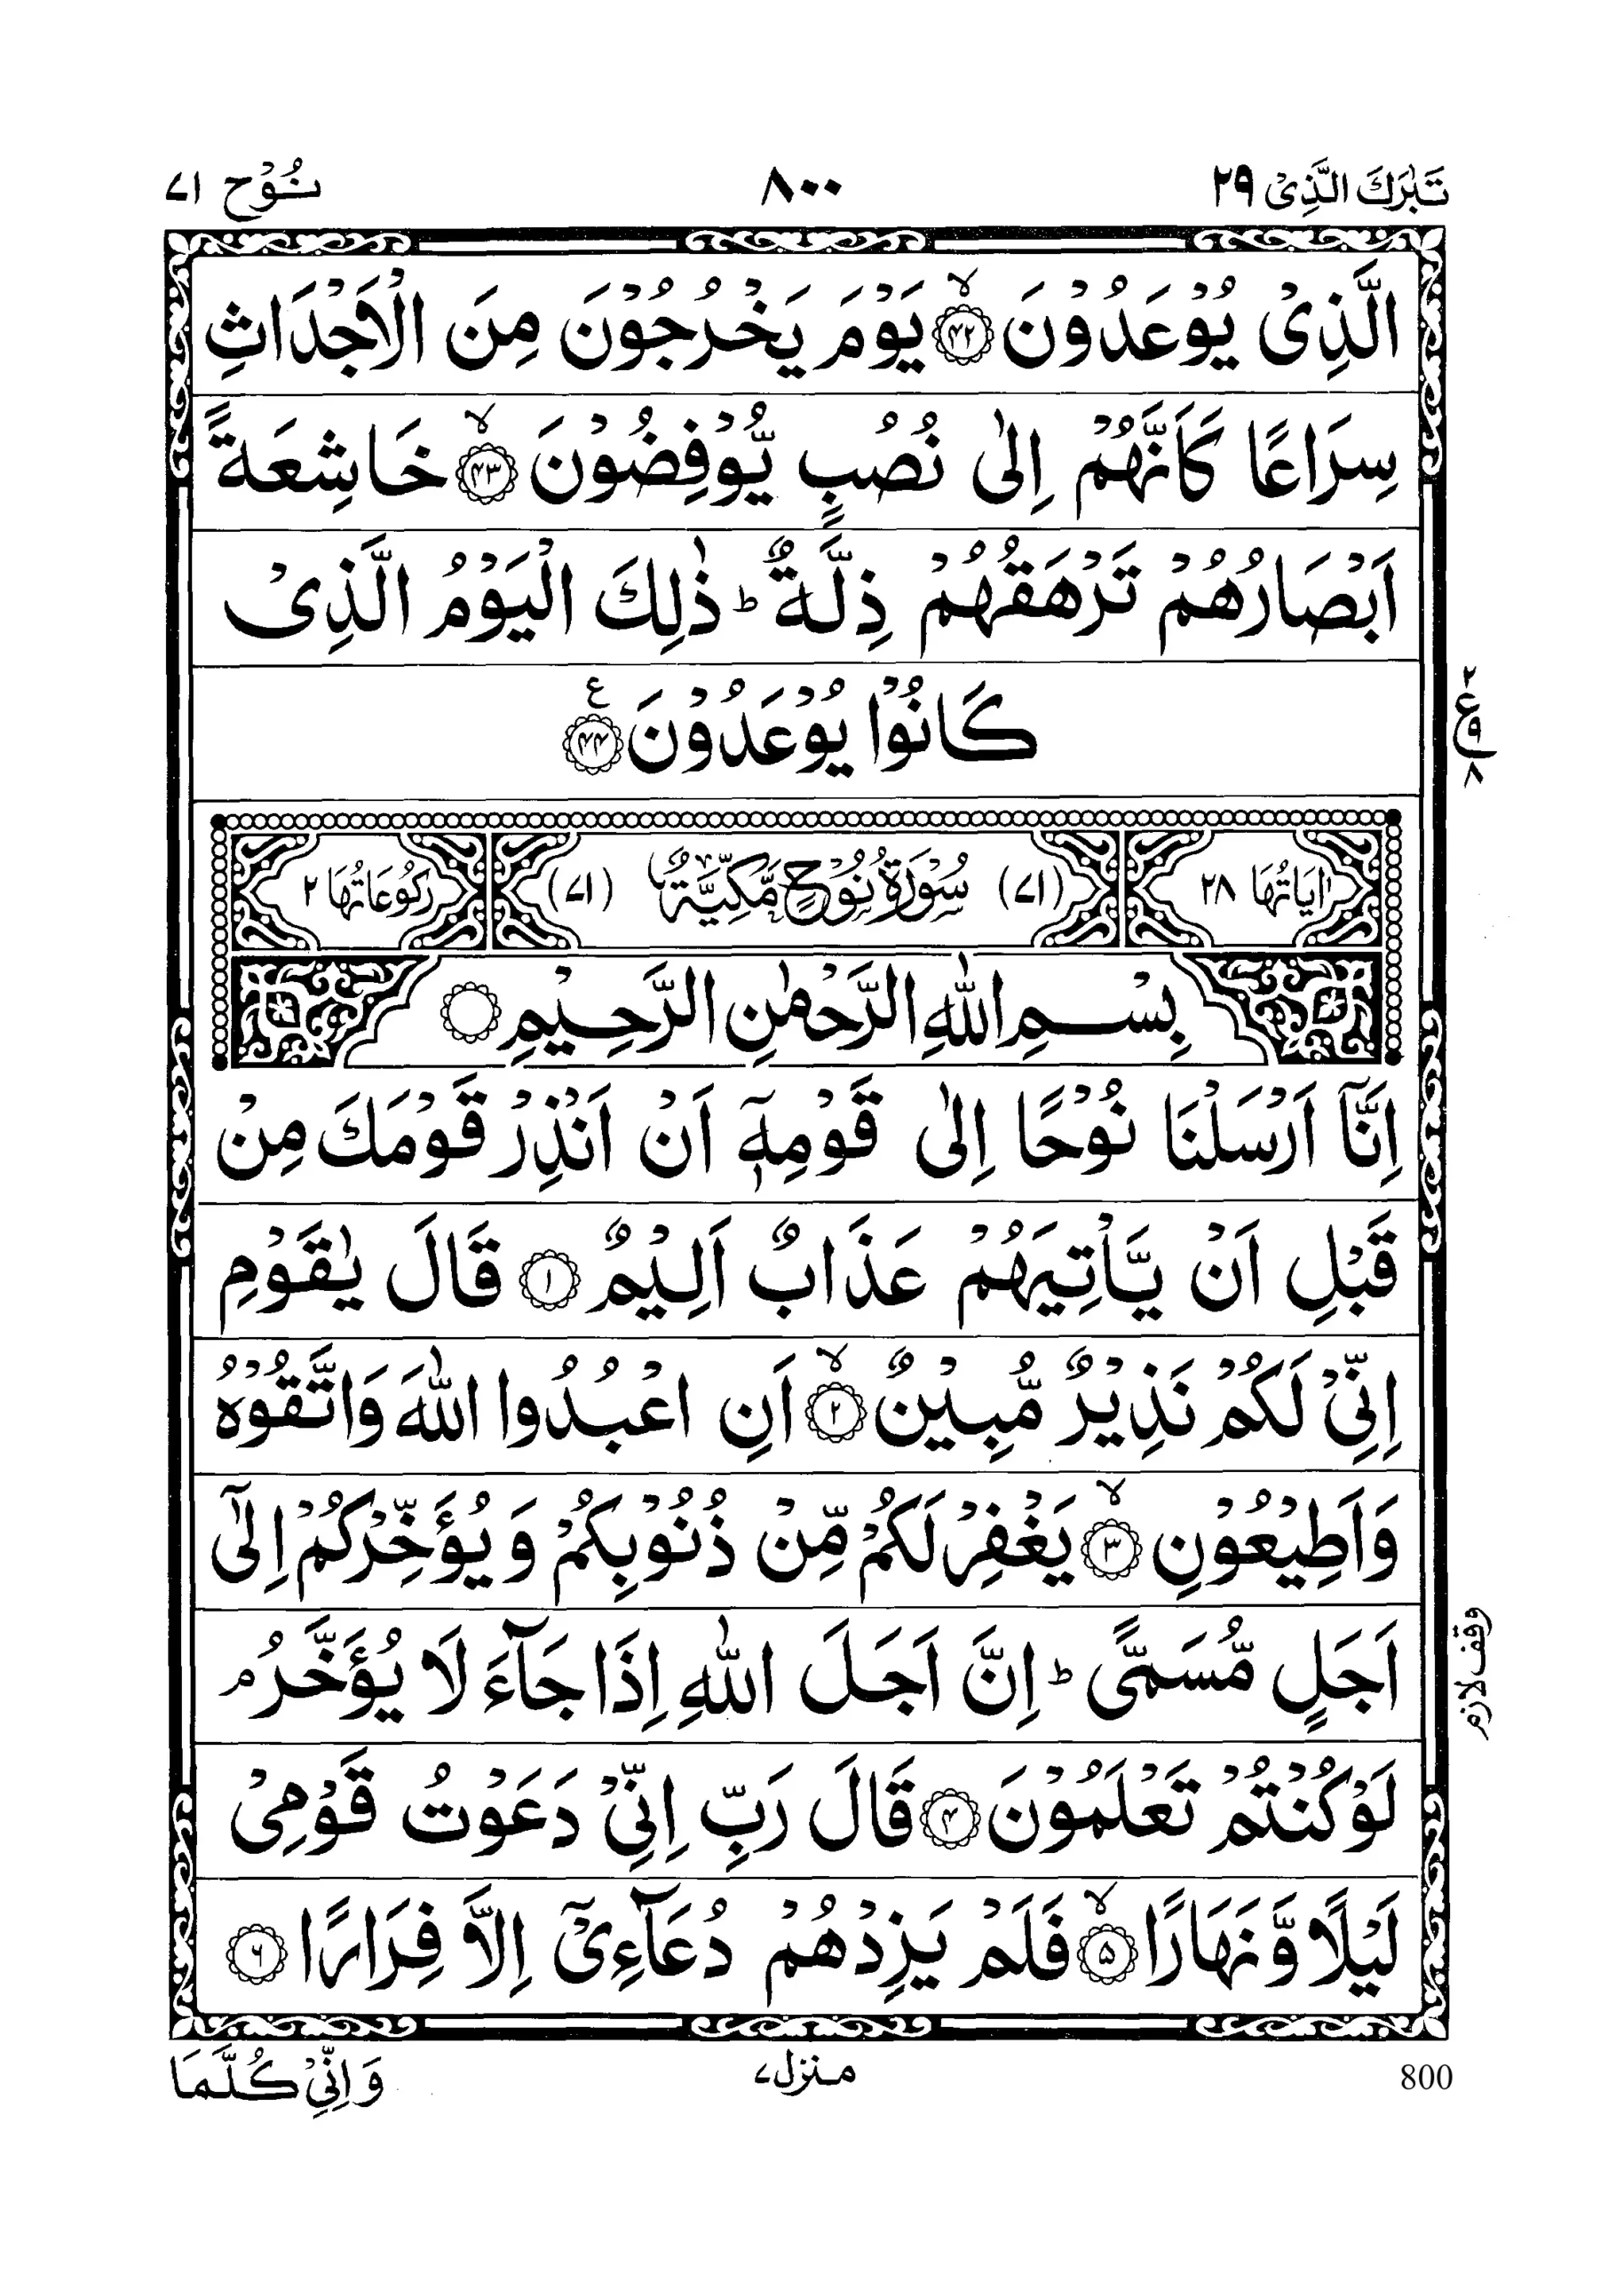 تَبٰرَكَ الَّذِىْ ٢٩
٨٠٠
نُوْح ٧١
الَّذِىْ يُوْعَدُوْنَ ۙ﴿۴۲﴾ يَوْمَ يَخْرُجُوْنَ مِنَ الْاَجْدَاثِ
سِرَاعًا كَاَنَّهُمْ اِلٰى نُصُبٍ يُّوْفِضُوْنَ ۙ﴿۴۳﴾ خَاشِعَةً
اَبْصَارُهُمْ تَرْهَقُهُمْ ذِلَّةٌ ؕ ذٰلِكَ الْيَوْمُ الَّذِىْ
كَانُوْا يُوْعَدُوْنَ ﴿۴۴﴾ ع
٢
ع
٩
٨
اٰيَاتُهَا ٢٨
(٧١) سُوْرَةُ نُوْحٍ مَّكِّيَّةٌ (٧١)
رُكُوْعَاتُهَا ٢
بِسْمِ اللّٰهِ الرَّحْمٰنِ الرَّحِيْمِ
اِنَّاۤ اَرْسَلْنَا نُوْحًا اِلٰى قَوْمِهٖۤ اَنْ اَنْذِرْ قَوْمَكَ مِنْ
قَبْلِ اَنْ يَّاْتِيَهُمْ عَذَابٌ اَلِيْمٌ ﴿۱﴾ قَالَ يٰقَوْمِ
اِنِّىْ لَكُمْ نَذِيْرٌ مُّبِيْنٌ ۙ﴿۲﴾ اَنِ اعْبُدُوا اللّٰهَ وَاتَّقُوْهُ
وَاَطِيْعُوْنِ ۙ﴿۳﴾ يَغْفِرْ لَكُمْ مِّنْ ذُنُوْبِكُمْ وَيُؤَخِّرْكُمْ اِلٰۤى
اَجَلٍ مُّسَمًّى ؕ اِنَّ اَجَلَ اللّٰهِ اِذَا جَآءَ لَا يُؤَخَّرُ ۘ
وقف لازم
لَوْ كُنْتُمْ تَعْلَمُوْنَ ﴿۴﴾ قَالَ رَبِّ اِنِّىْ دَعَوْتُ قَوْمِىْ
لَيْلًا وَّنَهَارًا ۙ﴿۵﴾ فَلَمْ يَزِدْهُمْ دُعَآءِىْۤ اِلَّا فِرَارًا ﴿۶﴾
800
منزل ٧
وَاِنِّىْ كُلَّمَا